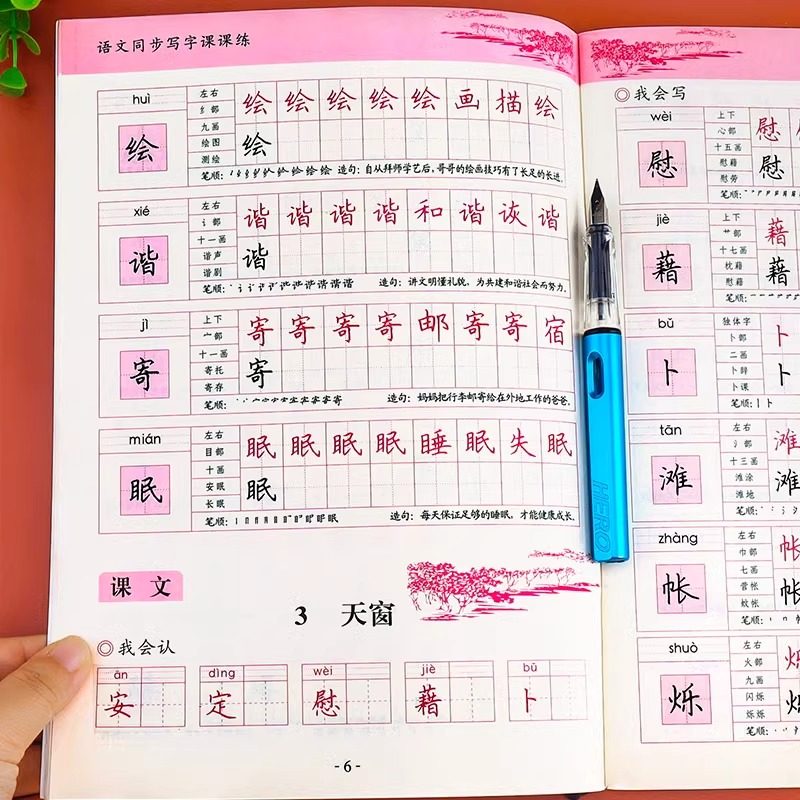 语文同步写字课课练
huì
绘
左右
纟部
九画
绘图
测绘
绘 绘 绘 绘 绘 画 描 绘
绘
笔顺:
造句:自从拜师学艺后,哥哥的绘画技巧有了长足的长进。
xié
谐
左右
讠部
十一画
谐声
谐剧
谐 谐 谐 谐 和 谐 诙 谐
谐
笔顺:
造句:讲文明懂礼貌,为共建和谐社会而努力。
jì
寄
上下
宀部
十一画
寄托
寄存
寄 寄 寄 寄 邮 寄 寄 宿
寄
笔顺:
造句:妈妈把行李邮寄给在外地工作的爸爸。
mián
眠
左右
目部
十画
安眠
长眠
眠 眠 眠 眠 睡 眠 失 眠
眠
笔顺:
造句:每天保证足够的睡眠,才能健康成长。
课 文
3 天窗
◎我会认
ān dìng wèi jiè bǔ
安 定 慰 藉 卜
- 6 -
◎我会写
wèi
慰
上下
心部
十五画
慰藉
慰劳
慰
慰
笔顺:
jiè
藉
上下
艹部
十七画
枕藉
慰藉
藉
藉
笔顺:
bǔ
卜
独体字
卜部
二画
卜辞
卜课
卜
卜
笔顺:丨卜
tān
滩
左右
氵部
十三画
滩涂
滩地
滩
滩
笔顺:
zhàng
帐
左右
巾部
七画
营帐
蚊帐
帐
帐
笔顺:
shuò
烁
左右
火部
九画
闪烁
烁烁
烁
烁
笔顺:
HERO